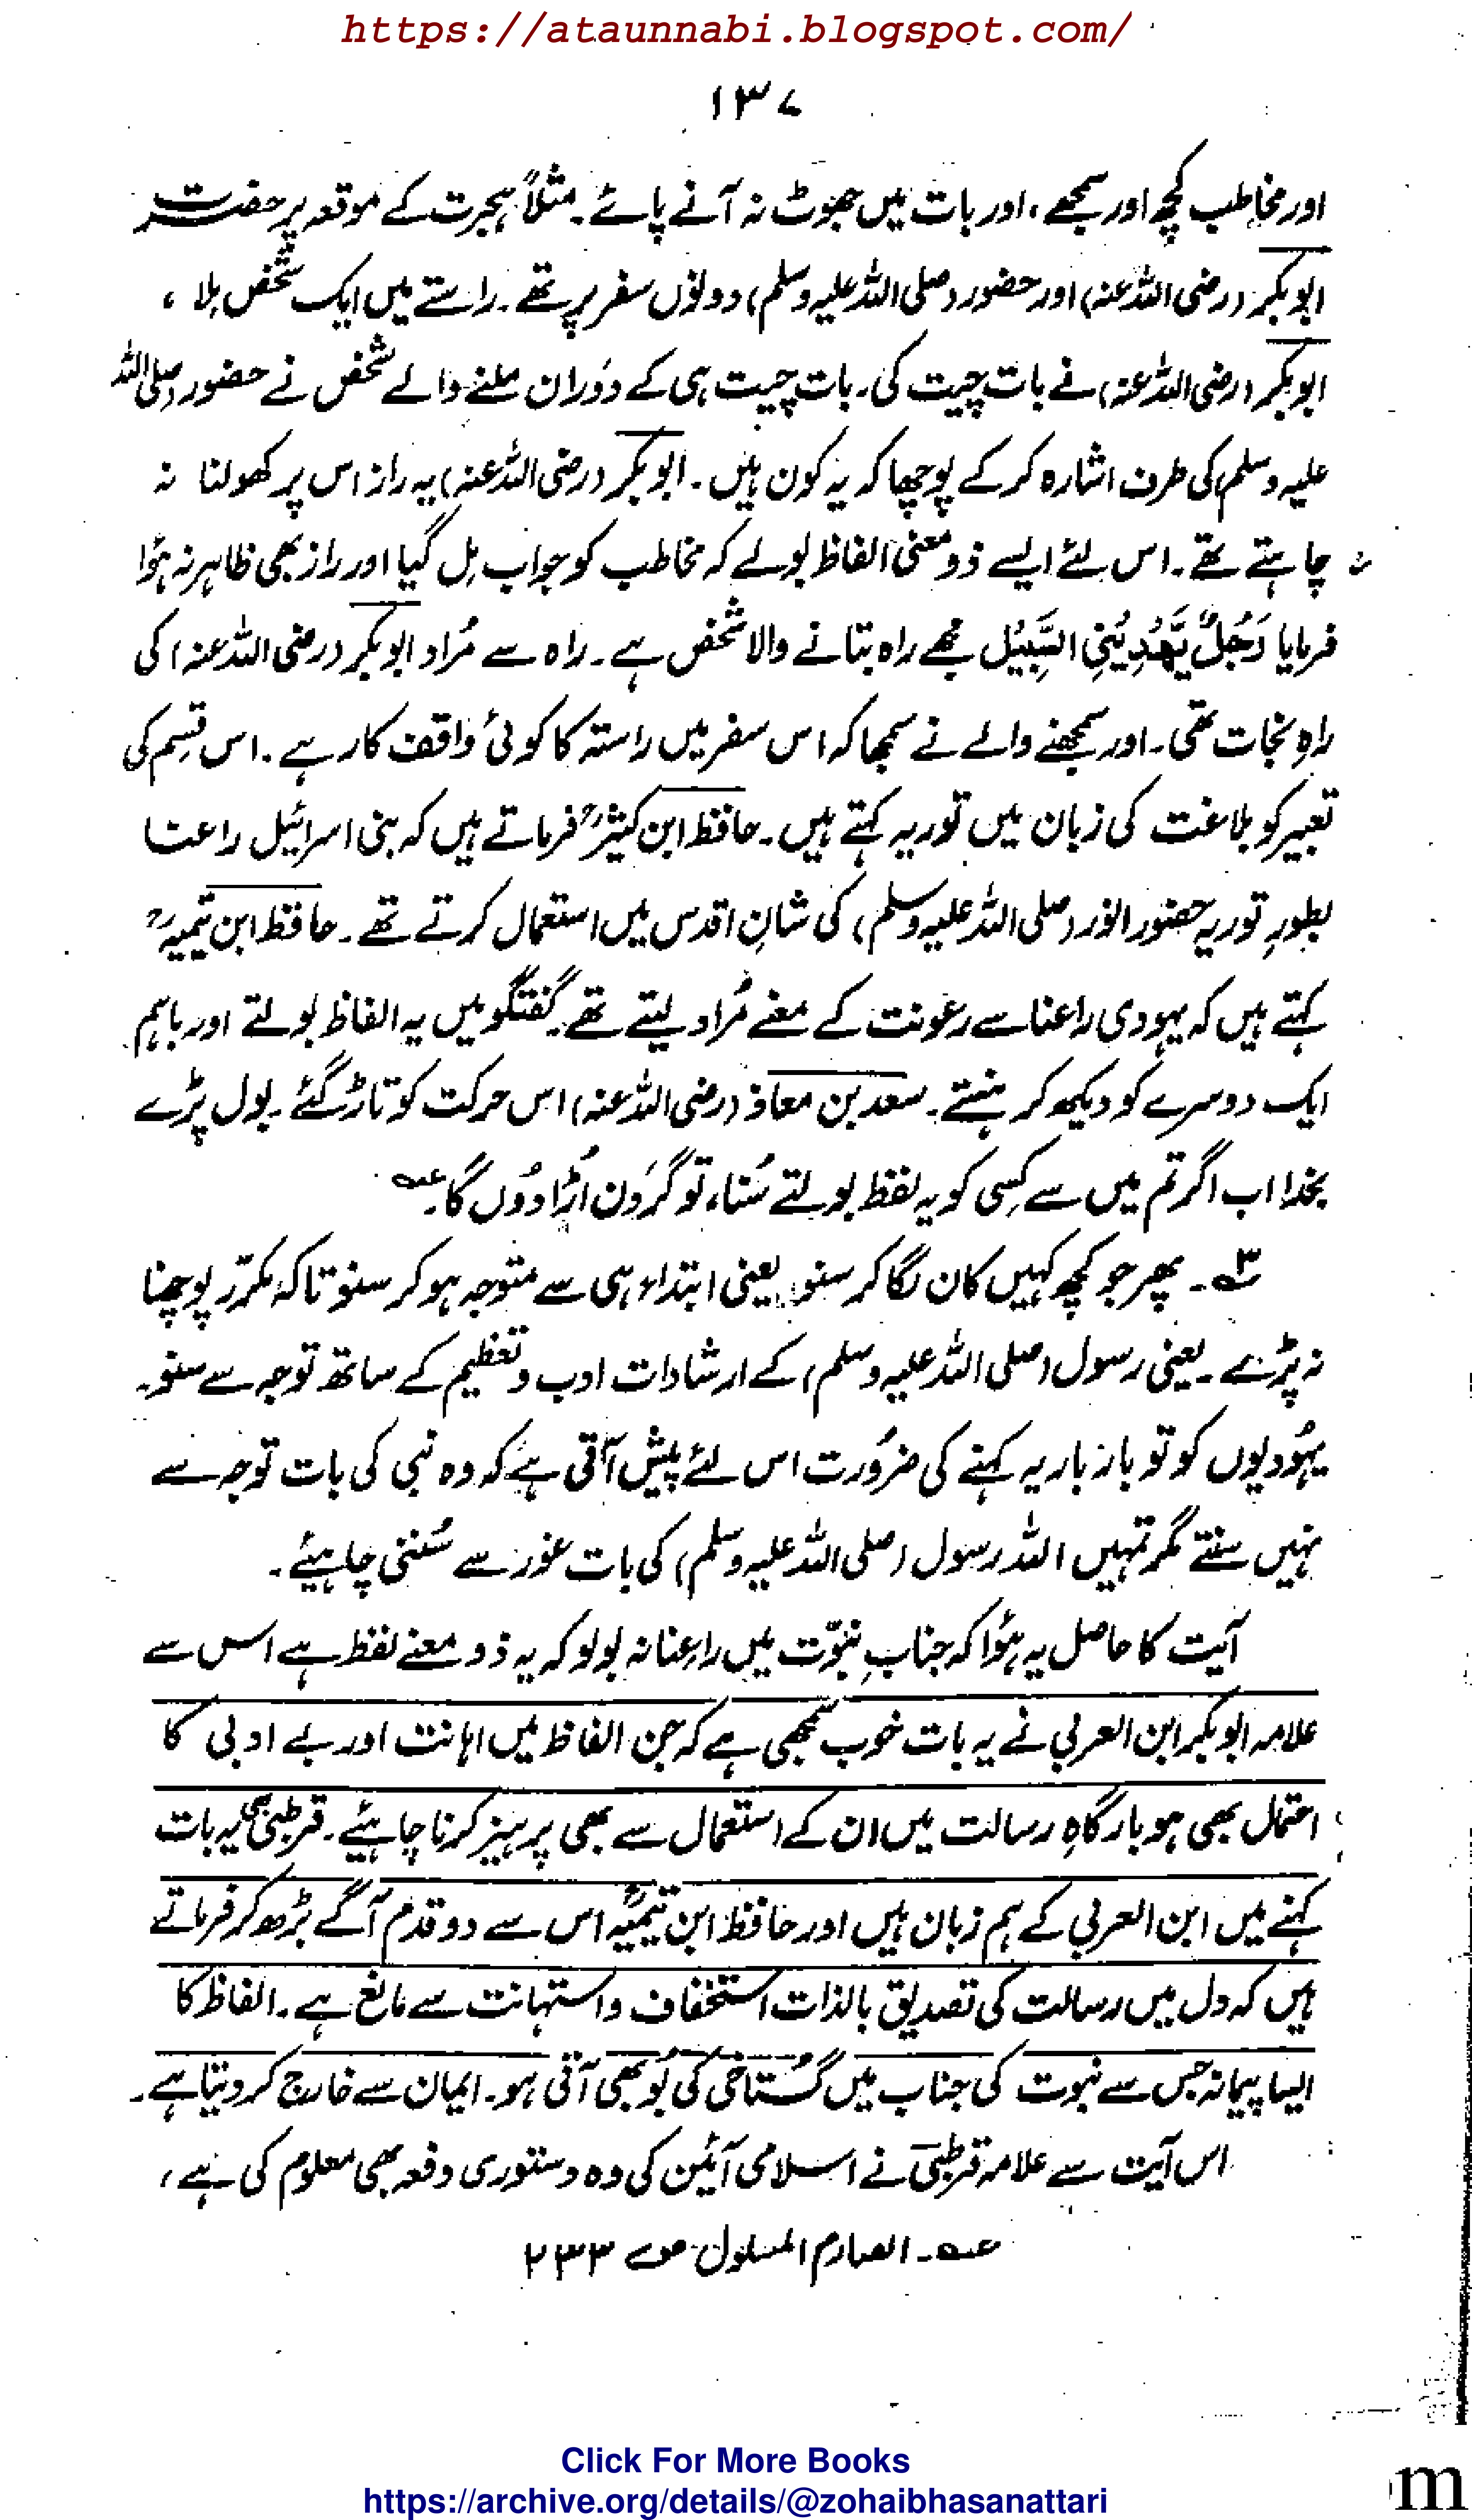 https://ataunnabi.blogspot.com/
۱۳۷
اور مخاطب کچھ اور سمجھے، اور بات میں جھوٹ نہ آنے پائے۔ مثلاً ہجرت کے موقعہ پر حضرت
ابو بکر (رضی اللہ عنہ) اور حضور (صلی اللہ علیہ وسلم) دونوں سفر پر تھے۔ راستے میں ایک شخص ملا،
ابو بکر (رضی اللہ عنہ) نے بات چیت کی۔ بات چیت ہی کے دَوران ملنے والے شخص نے حضور (صلی اللہ
علیہ وسلم) کی طرف اشارہ کر کے پوچھا کہ یہ کون ہیں۔ ابو بکر (رضی اللہ عنہ) یہ راز اس پر کھولنا نہ
چاہتے تھے۔ اس لئے ایسے ذو معنی الفاظ بولے کہ مخاطب کو جواب مِل گیا اور راز بھی ظاہر نہ ہؤا
فرمایا رَجُلٌ یَّھْدِیْنِی السَّبِیْل مجھے راہ بتانے والا شخص ہے۔ راہ سے مُراد ابو بکر (رضی اللہ عنہ) کی
راہِ نجات تھی۔ اور سمجھنے والے نے سمجھا کہ اس سفر میں راستہ کا کوئی واقف کار ہے۔ اس قِسم کی
تعبیر کو بلاغت کی زبان میں توریہ کہتے ہیں۔ حافظ ابن کثیرؒ فرماتے ہیں کہ بنی اسرائیل راعنا
بطورِ توریہ حضور انور (صلی اللہ علیہ وسلم) کی شانِ اقدس میں استعمال کرتے تھے۔ حافظ ابن تیمیہؒ
کہتے ہیں کہ یہودی راعنا سے رعونت کے معنے مُراد لیتے تھے۔ گفتگو میں یہ الفاظ بولتے اور باہم
ایک دوسرے کو دیکھ کر ہنستے۔ سعد بن معاذ (رضی اللہ عنہ) اس حرکت کو تاڑ گئے۔ بول پڑے
بخدا اب اگر تم میں سے کِسی کو یہ لفظ بولتے سُنا، تو گردَن اُڑا دوُں گا۔عہ
۳۔ پھر جو کچھ کہیں کان لگا کر سنو۔ یعنی ابتداء ہی سے متوجہ ہو کر سنو تاکہ مکرّر پوچھنا
نہ پڑے۔ یعنی رسول (صلی اللہ علیہ وسلم) کے ارشادات ادب و تعظیم کے ساتھ توجہ سے سنو۔
یہُودیوں کو تو بار بار یہ کہنے کی ضرُورت اس لئے پیش آتی ہے کہ وہ نبی کی بات توجہ سے
نہیں سنتے مگر تمہیں اللہ رسول (صلی اللہ علیہ وسلم) کی بات غور سے سُننی چاہیئے۔
آیت کا حاصل یہ ہؤا کہ جنابِ نبوّت میں راعِنا نہ بولو کہ یہ ذو معنے لفظ ہے اس سے
علامہ ابو بکر ابن العربی نے یہ بات خوب سمجھی ہے کہ جن الفاظ میں اہانت اور بے ادبی کا
احتمال بھی ہو بارگاہِ رسالت میں ان کے استعمال سے بھی پرہیز کرنا چاہیئے۔ قرطبی بھی یہ بات
کہنے میں ابن العربی کے ہم زبان ہیں اور حافظ ابن تیمیہؒ اس سے دو قدم آگے بڑھ کر فرماتے
ہیں کہ دل میں رسالت کی تصدیق بالذات استخفاف و استہانت سے مانع ہے۔ الفاظ کا
ایسا پیمانہ جس سے نبوت کی جناب میں گُستاخی کی بُو بھی آتی ہو۔ ایمان سے خارج کر دیتا ہے۔
اس آیت سے علامہ قرطبی نے اسلامی آئین کی وہ دستوری دفعہ بھی معلوم کی ہے،
عہ۔ الصارم المسلول ص ۲۳۳
Click For More Books
https://archive.org/details/@zohaibhasanattari
m